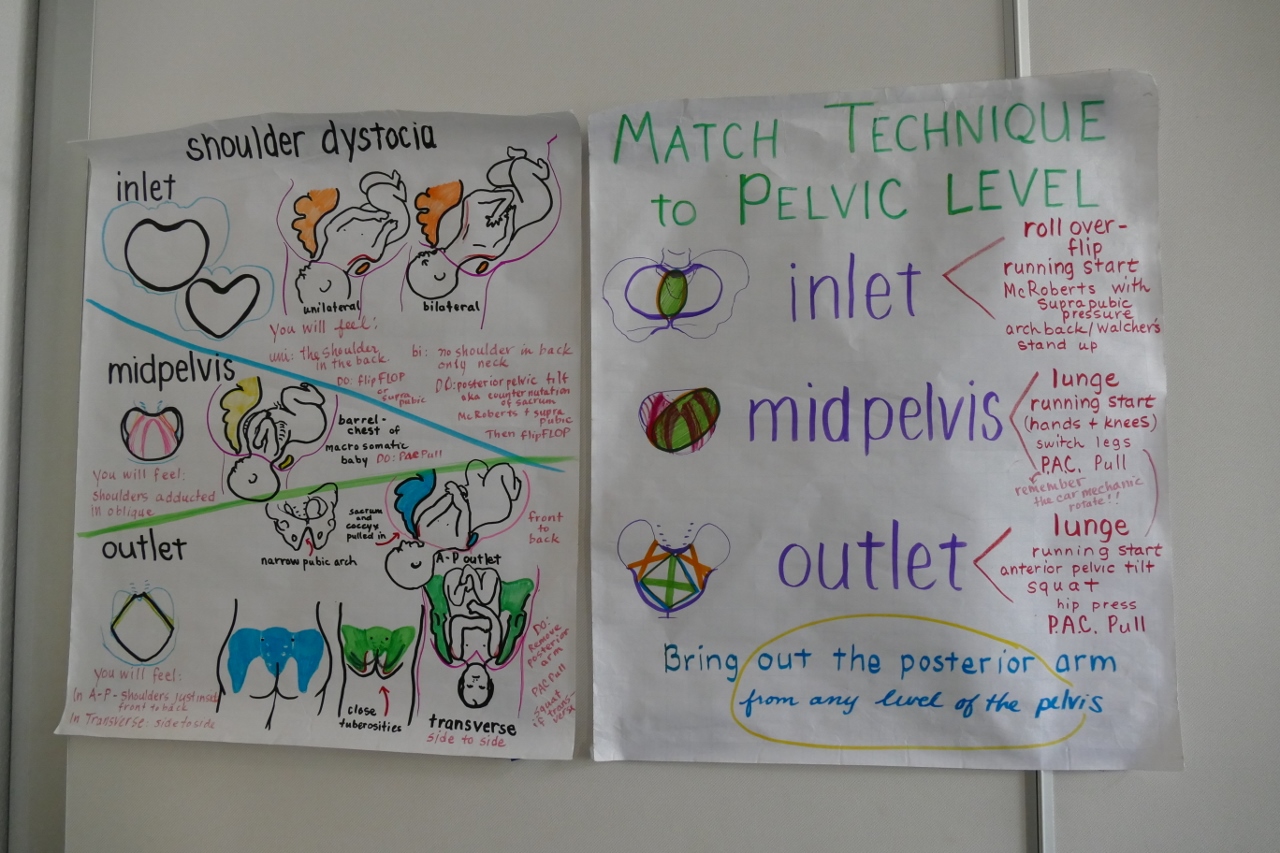 shoulder dystocia
inlet
unilateral
bilateral
You will feel:
uni: the shoulder
in the back
DO: flipFLOP
supra
pubic
bi: no shoulder in back
only neck
DO: posterior pelvic tilt
aka counternutation
of sacrum
McRoberts + supra
pubic
Then flipFLOP
midpelvis
barrel-
chest of
macrosomatic
baby DO: PAC Pull
You will feel:
shoulders adducted
in oblique
outlet
narrow pubic arch
sacrum
and
coccyx
pulled in
A-P outlet
front
to
back
You will feel:
In A-P - shoulders just inside
front to back
In Transverse: side to side
close
tuberosities
transverse
side to side
DO:
Remove
posterior
arm
PAC Pull
squat
if trans-
verse
MATCH TECHNIQUE
to PELVIC LEVEL
inlet
roll over-
flip
running start
McRoberts with
Suprapubic
pressure
arch back/Walcher's
stand up
midpelvis
lunge
running start
(hands + knees)
switch legs
P.A.C. Pull
remember
the car mechanic
rotate!!
outlet
lunge
running start
anterior pelvic tilt
squat
hip press
P.A.C. Pull
Bring out the posterior arm
from any level of the pelvis